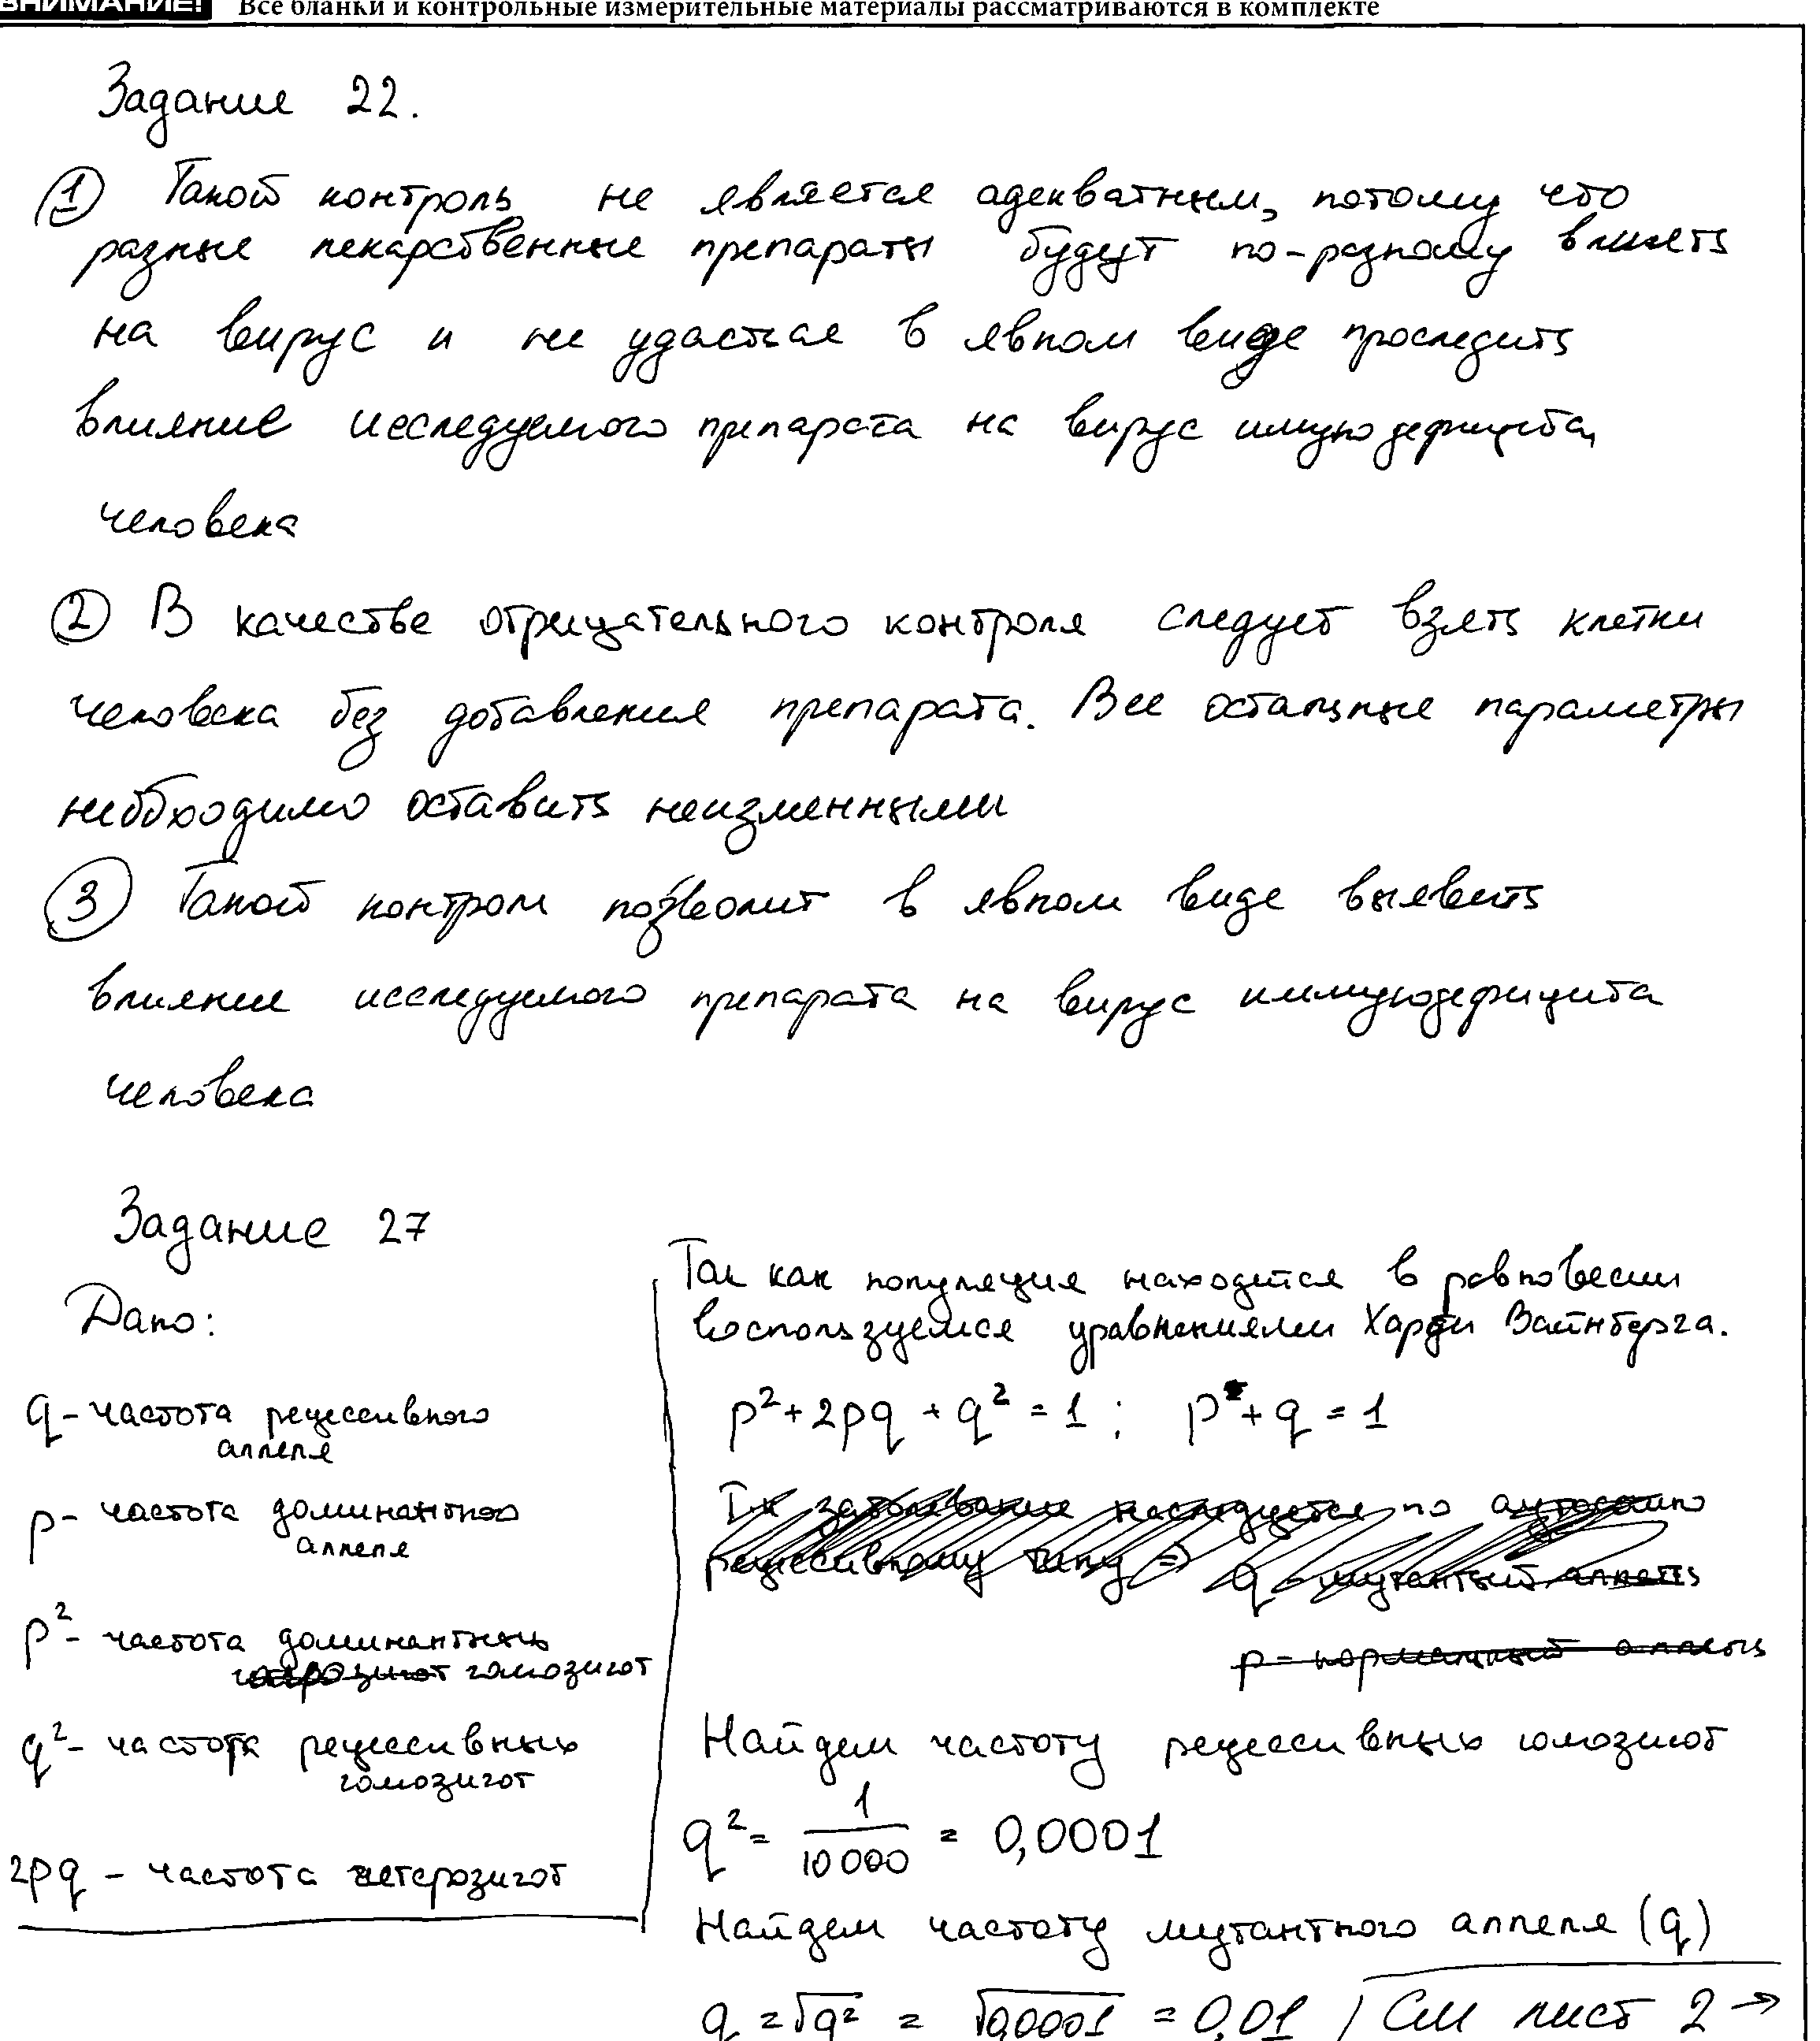 ВНИМАНИЕ! Все бланки и контрольные измерительные материалы рассматриваются в комплекте
Задание 22.
① Такой контроль не является адекватным, потому что
разные лекарственные препараты будут по-разному влиять
на вирус и не удастся в явном виде проследить
влияние исследуемого препарата на вирус имунодефицита,
человека
② В качестве отрицательного контроля следует взять клетки
человека без добавления препарата. Все остальные параметры
необходимо оставить неизменными
③ Такой контроль позволит в явном виде выявить
влияние исследуемого препарата на вирус иммунодефицита
человека
Задание 27
Дано:
q - частота рецессивного
аллеля
p - частота доминантного
аллеля
p² - частота доминантных
гомозигот
q² - частота рецессивных
гомозигот
2pq - частота гетерозигот
Так как популяция находится в равновесии
воспользуемся уравнениями Харди Вайнберга.
p² + 2pq + q² = 1 ; p + q = 1
Т.к заболевание наследуется по аутосомно
рецессивному типу ⇒ q - мутантный аллель
p - нормальный аллель
Найдем частоту рецессивных гомозигот
q² = 1/10000 = 0,0001
Найдем частоту мутантного аллеля (q)
q = √q² = √0,0001 = 0,01 / См лист 2 →